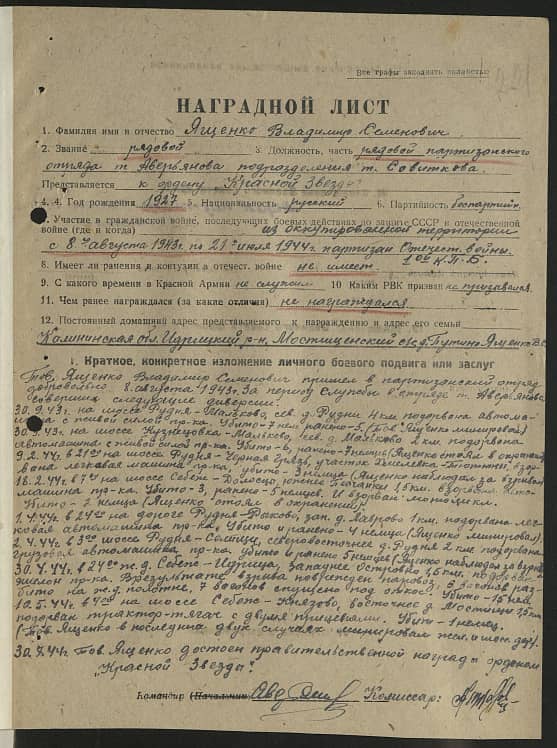 Все графы заполнять полностью
НАГРАДНОЙ ЛИСТ
1. Фамилия имя и отчество Ященко Владимир Семенович
2. Звание рядовой 3. Должность, часть рядовой партизанского
отряда т. Аверьянова подразделения т. Совиткова.
Представляется к ордену "Красной Звезды"
4. Год рождения 1927 5. Национальность русский 6. Партийность беспартийн.
7. Участие в гражданской войне, последующих боевых действиях по защите СССР и отечественной
войне (где и когда) на оккупированной территории
с 8го августа 1943г. по 21го июля 1944г. партизан Отечест. войны.
8. Имеет ли ранения и контузии в отечест. войне не имеет.
9. С какого времени в Красной Армии не служит 10 Каким РВК призван не призывался.
11. Чем ранее награждался (за какие отличия) не награждался.
12. Постоянный домашний адрес представляемого к награждению и адрес его семьи
Калининская обл. Идрицкий р-н, Мостищенский с/с д. Ященко В.С.
1. Краткое, конкретное изложение личного боевого подвига или заслуг
Тов. Ященко Владимир Семенович пришел в партизанский отряд
добровольно 8 августа 1943г. За период службы в отряде т. Аверьянова
совершил следующие диверсии:
30.9.43г. на шоссе Рудня-Малеево, сев. д. Рудня 4 км подорвана автома-
шина с живой силой пр-ка. Убито-7 нем. ранено-5. (Тов. Ященко минировал)
на шоссе Кузнецовка-Малеево, сев. д. Малеево 2 км. подорвана
автомашина с живой силой пр-ка. Убито-6, ранено-7 немцев (Ященко стоял в охранен)
9.2.44г. в 21 00 на шоссе Рудня-Черная Грязь, участок взор-
вана легковая машина пр-ка, убито-3 немца (Ященко наблюдал за взрывом)
18.2.44г. в 7 00 на шоссе Себеж-Долосцы, 1,5 км. взорвана
машина пр-ка. Убито-3, ранено-5 немцев. И взорван мотоцикл.
Убито-2 немца (Ященко стоял в охранении).
1.4.44г. в 24 00 на дороге Рудня-Рыково, зап. д. Лаврово 1 км. подорвана лег-
ковая автомашина пр-ка, убито и ранено-4 немца (Ященко минировал).
2.4.44г. в 3 00 шоссе Рудня- северовосточнее д. Рудня 2 км. подорвана
грузовая автомашина пр-ка. убито и ранено 5 немцев (Ященко наблюдал за взрыв)
30.4.44г. в 24 00 ж.д. Себеж-Идрица, западнее 1,5 км. подорван
эшелон пр-ка. В результате взрыва поврежден паровоз, 3 вагона раз-
бито на ж.д. полотне, 7 вагонов спущено под откос. Убито-
10.5.44г. в 4 00 на шоссе Себеж-Князево, восточнее д. Мостищи 2,5 км
подорван трактор-тягач с двумя прицепами. Убит-1 немец.
(Тов. Ященко в последних двух случаях минировал жел. и шос. дор.)
30.7.44г. Тов. Ященко достоен правительственной награды орденом
"Красной Звезды".
Командир (Начальник) Комиссар: